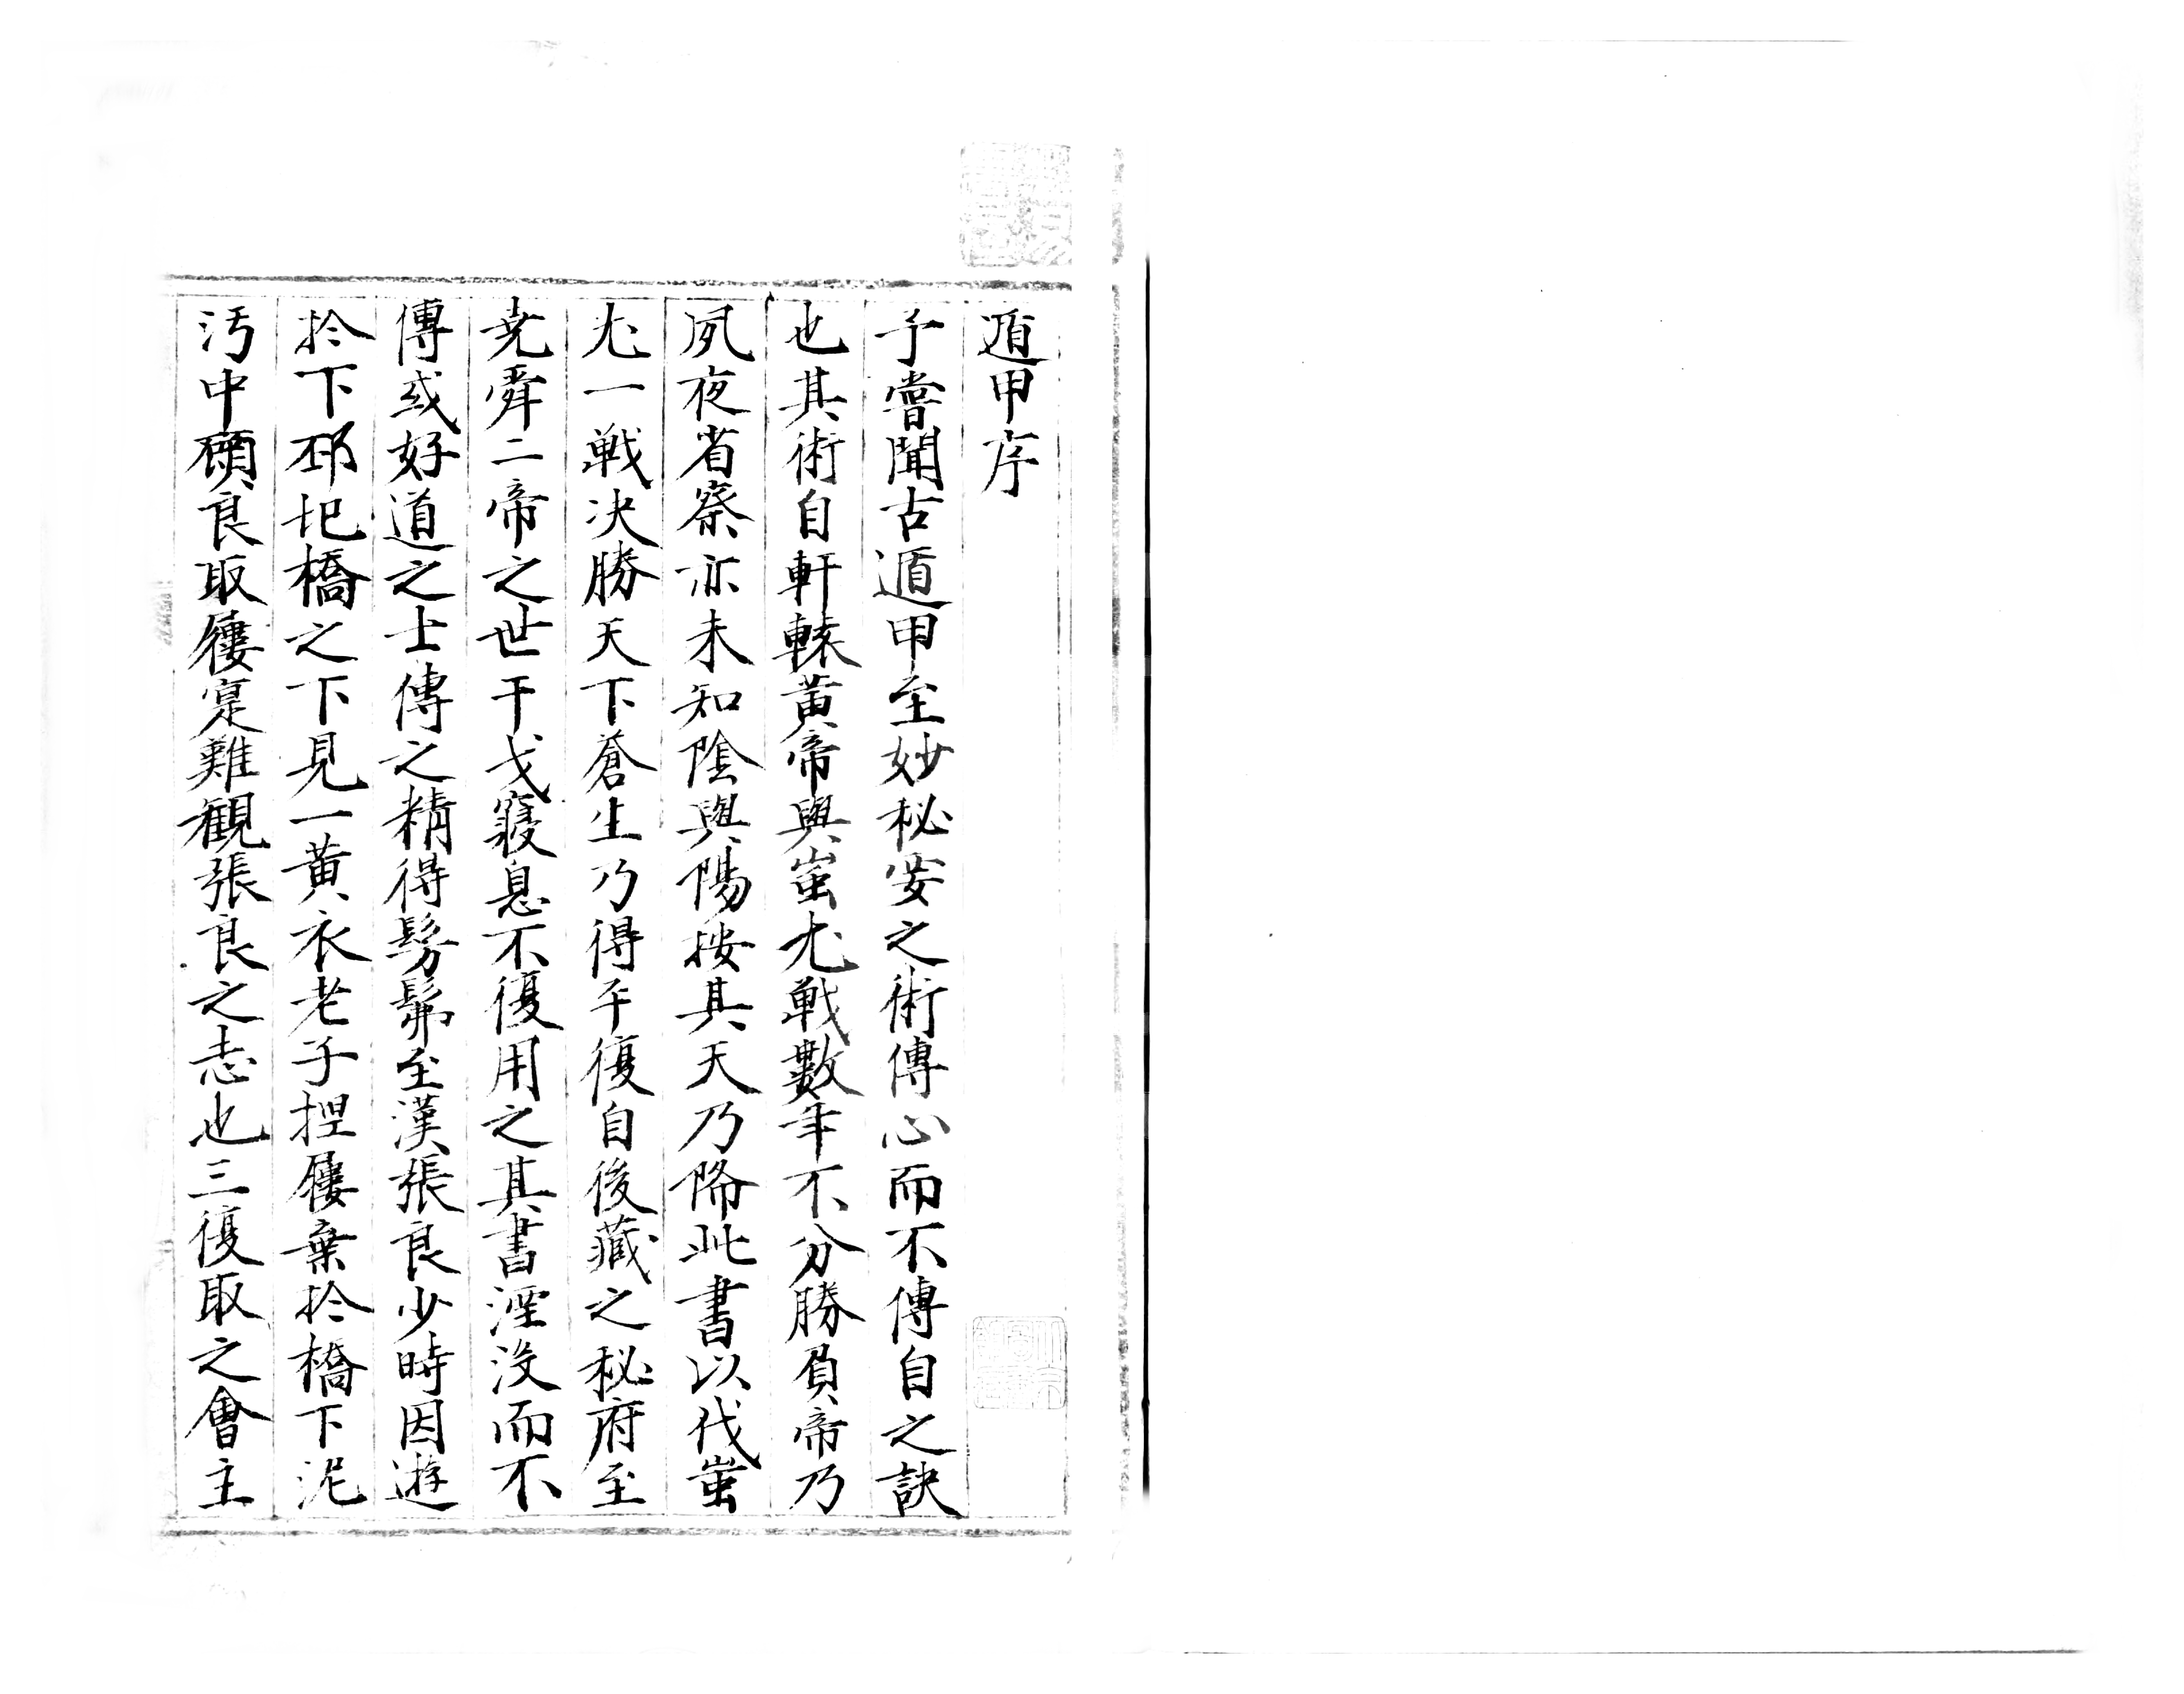 遁甲序
予嘗聞古遁甲至妙秘要之術傳心而不傳自之訣
也其術自軒轅黃帝與蚩尤戰數年不分勝負帝乃
夙夜省察亦未知陰與陽按其天乃降此書以伐蚩
尤一戰决勝天下蒼生乃得平復自後藏之秘府至
尭舜二帝之世干戈寢息不復用之其書湮没而不
傳或好道之士傳之精得髣髴至漢張良少時因遊
扵下邳圯橋之下見一黃衣老子担屨棄扵橋下泥
汚中顧良取屨寔難觀張良之志也三復取之會主